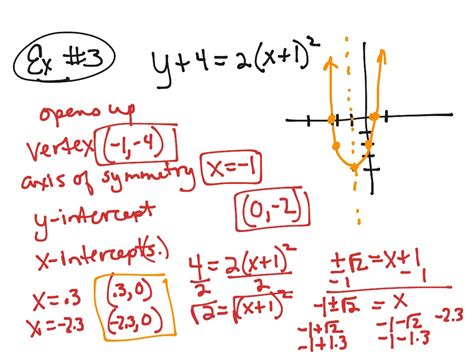 Ex #3
y+4=2(x+1)²
opens up
vertex (-1,-4)
axis of symmetry x=-1
y-intercept (0,-2)
x-intercept(s)
x=.3 (.3,0)
x=-2.3 (-2.3,0)
4=2(x+1)²
2 2
√2=√(x+1)²
±√2=x+1
-1 -1
-1±√2=x
-1+√2 -1-√2 -2.3
-1+1.3 -1-1.3